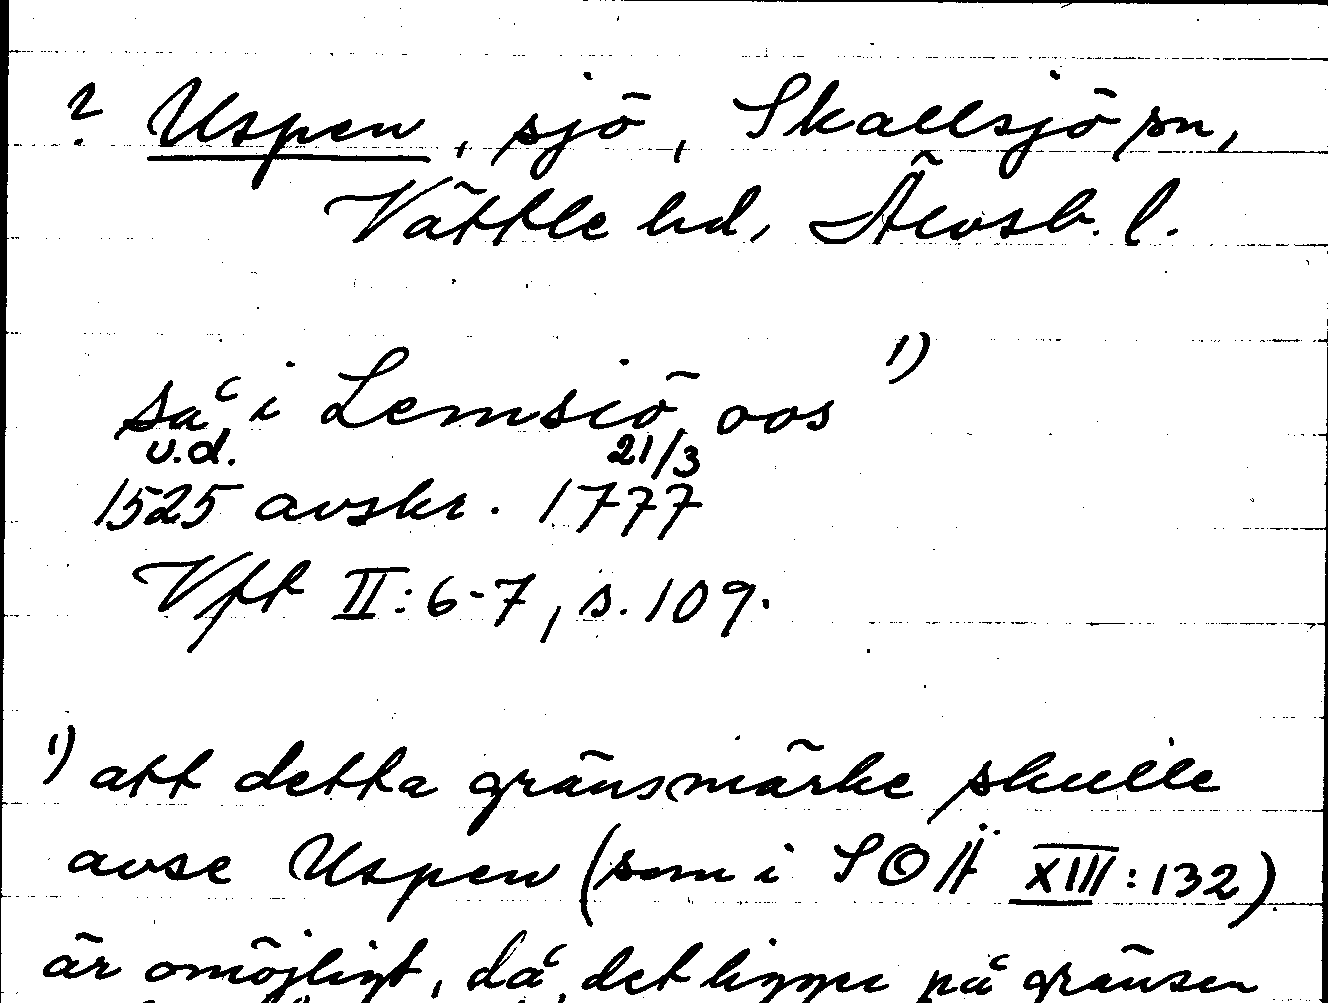 ? Uspen, sjö, Skallsjö sn,
Vättle hd, Älvsb. l.
så i Lemsiö oos 1)
u.d. 21/3
1525 avskr. 1777
Vft II:6-7, s. 109.
1) att detta gränsmärke skulle
avse Uspen (som i SOÄ XIII:132)
är omöjligt, då det ligger på gränsen